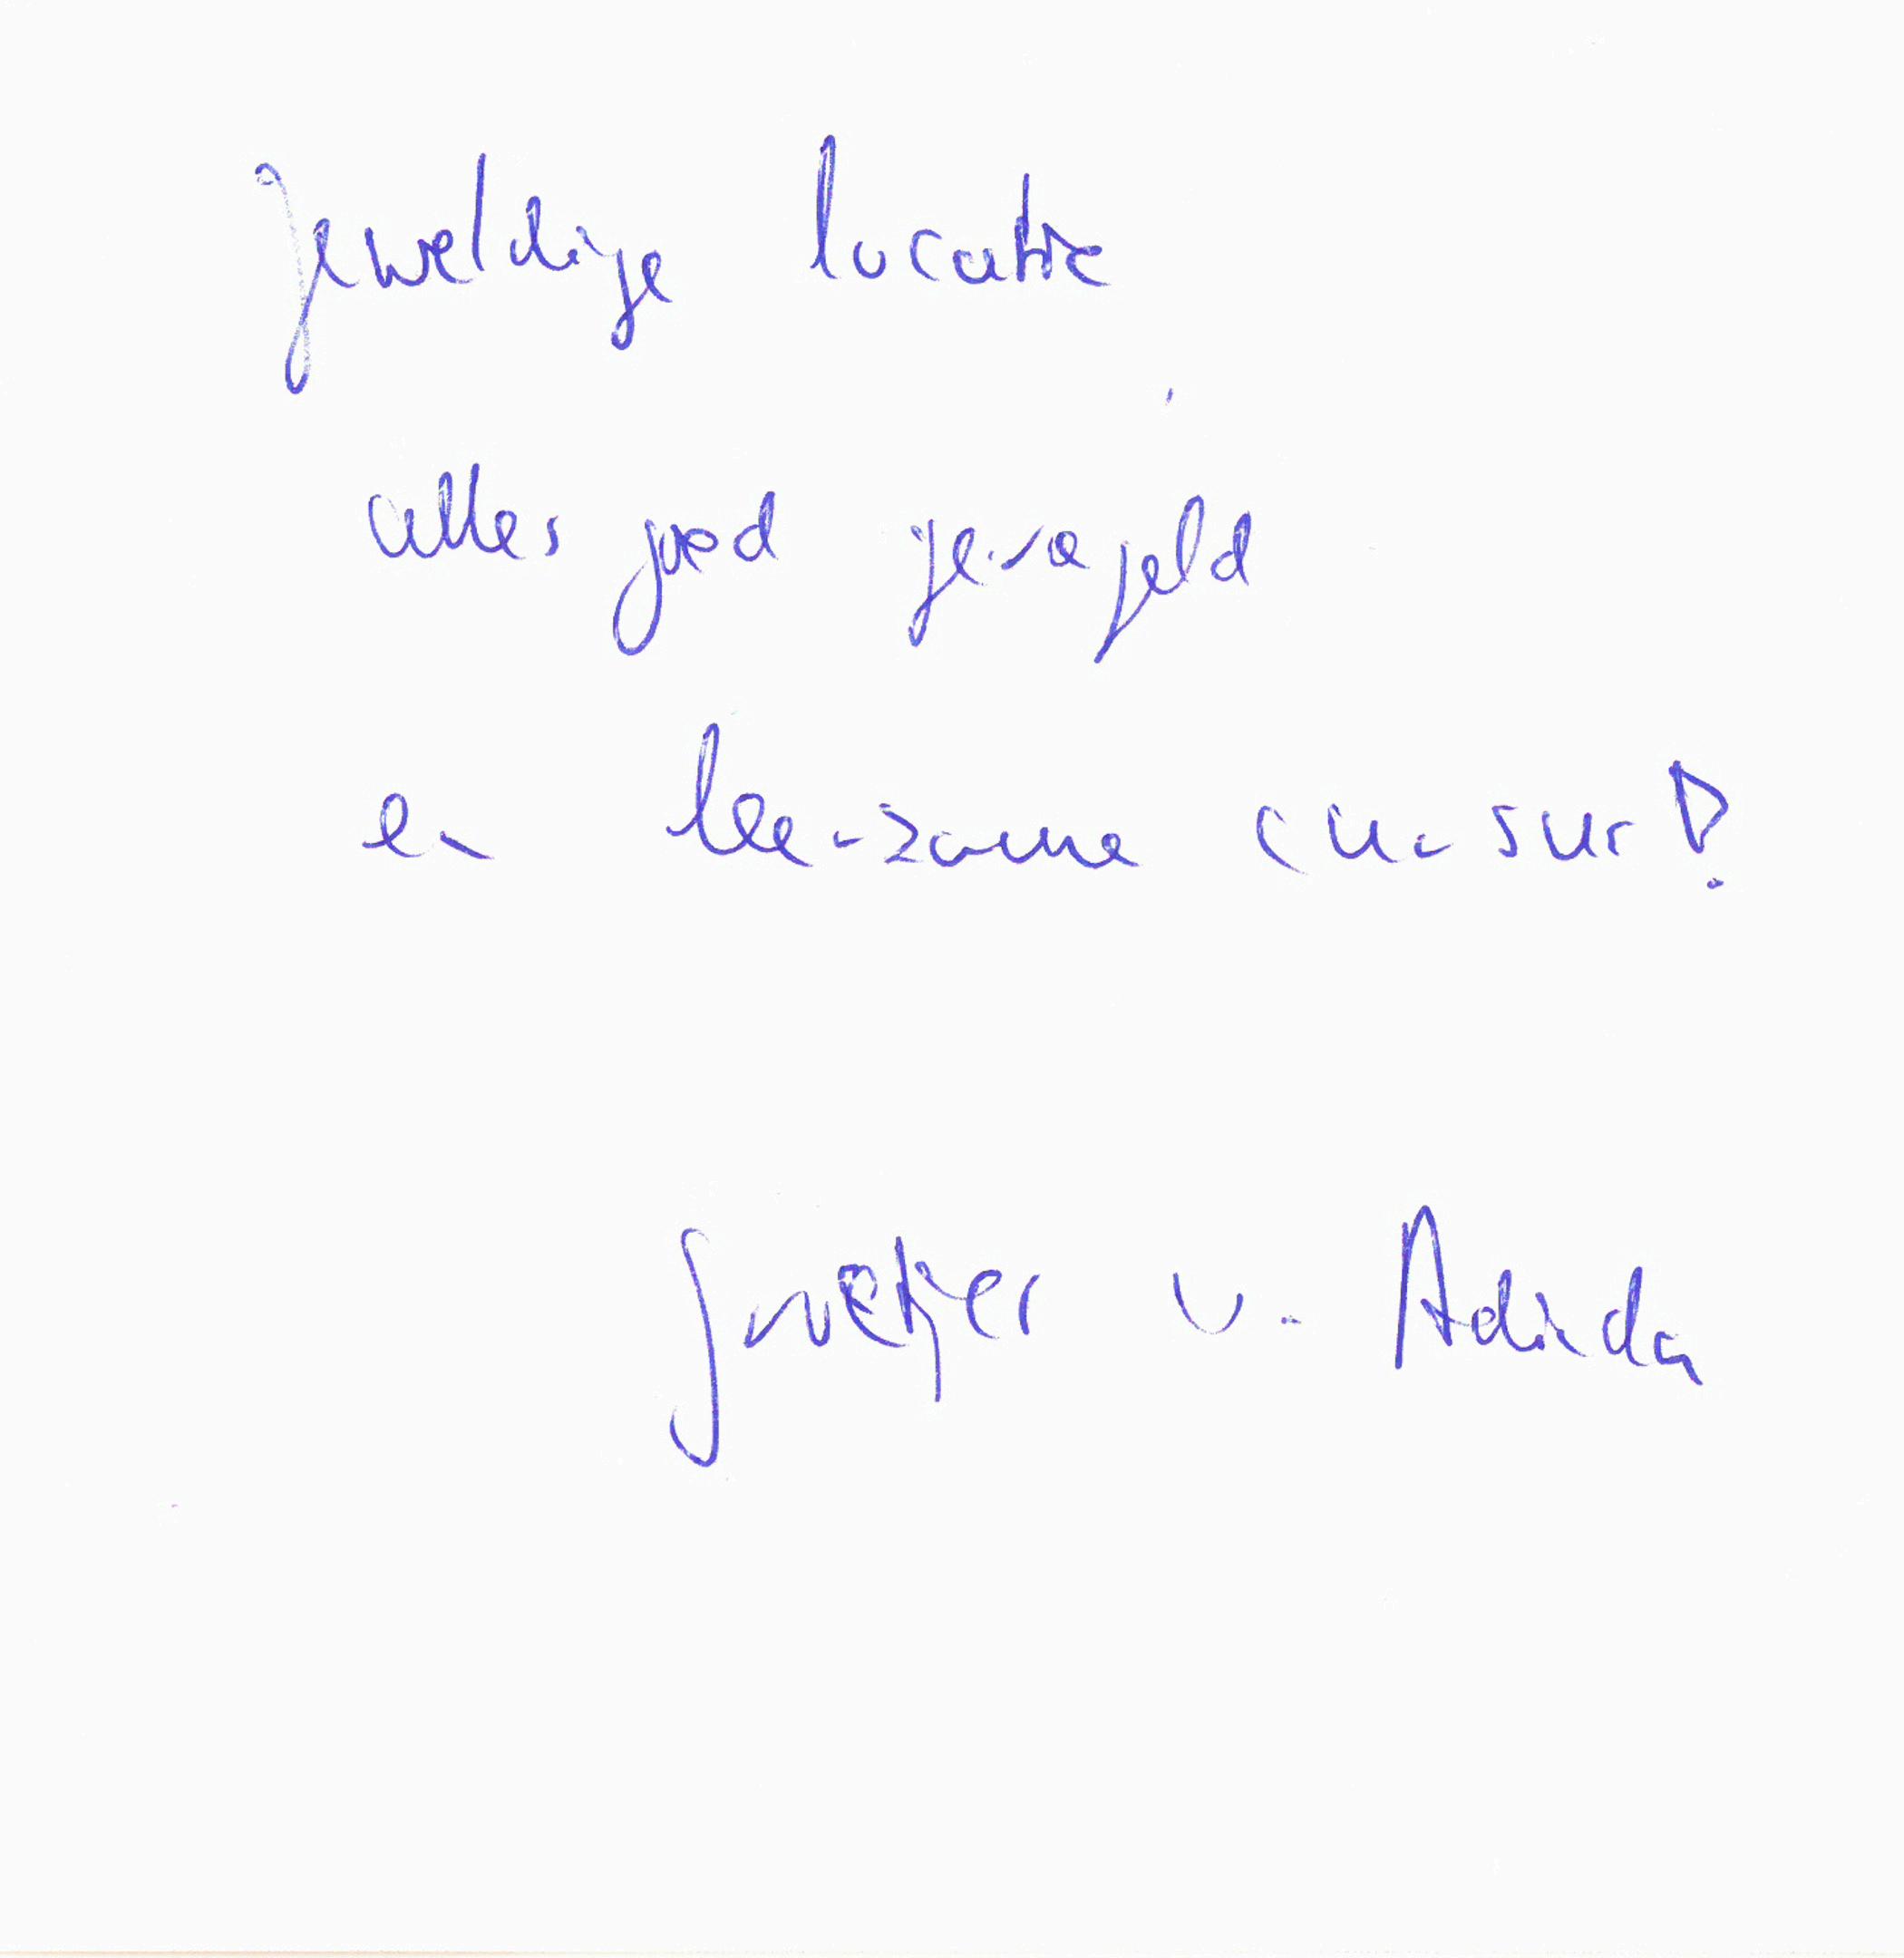 geweldige locatie
alles goed geregeld
en leerzame cursus!
groetjes v. Adinda